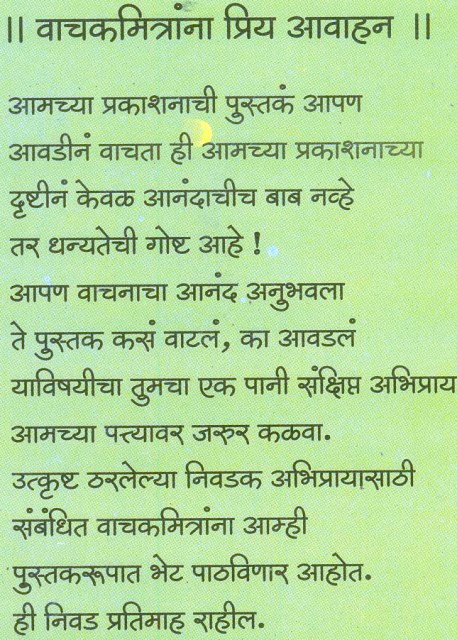 ॥ वाचकमित्रांना प्रिय आवाहन ॥
आमच्या प्रकाशनाची पुस्तकं आपण
आवडीनं वाचता ही आमच्या प्रकाशनाच्या
दृष्टीनं केवळ आनंदाचीच बाब नव्हे
तर धन्यतेची गोष्ट आहे !
आपण वाचनाचा आनंद अनुभवला
ते पुस्तक कसं वाटलं, का आवडलं
याविषयीचा तुमचा एक पानी संक्षिप्त अभिप्राय
आमच्या पत्त्यावर जरुर कळवा.
उत्कृष्ट ठरलेल्या निवडक अभिप्रायासाठी
संबंधित वाचकमित्रांना आम्ही
पुस्तकरूपात भेट पाठविणार आहोत.
ही निवड प्रतिमाह राहील.